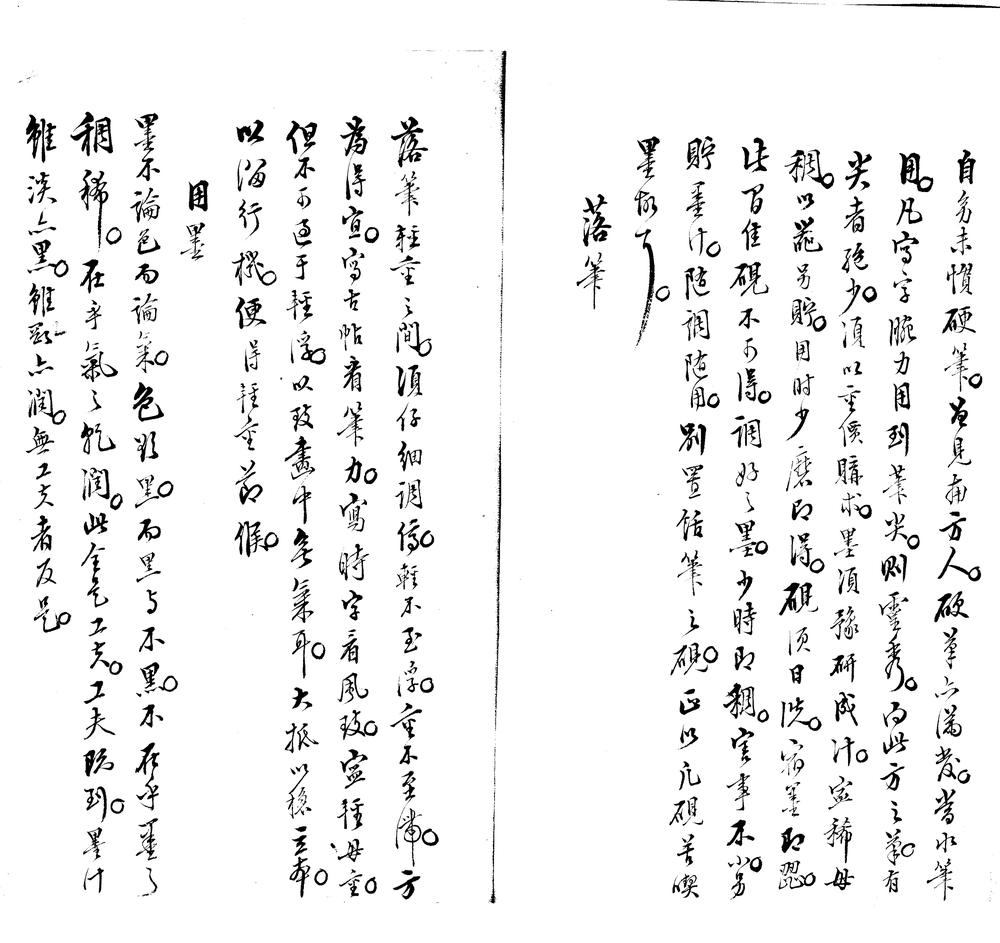 自多未慣硬筆。曾見南方人。硬筆亦滿發。當水筆
用。凡寫字腕力用到筆尖。則靈秀。而此方之筆。有
尖者絕少。須以重價購求。墨須豫研成汁。寧稀毋
稠。以器另貯。用時少磨即得。硯須日洗。宿墨即
此習佳硯不可得。調好之墨。少時即稠。害事不小。另
貯墨汁。隨調隨用。別置舐筆之硯。正以凡硯苦喫
墨故耳。
落筆
落筆輕重之間。須仔細調停。輕不至浮。重不至滯。方
為得宜。寫古帖看筆力。寫時字看風致。寧輕毋重。
但不可過于輕浮。以致畫中無氣耳。大抵以穩立本。
以活行機。便得輕重節候。
用墨
墨不論色而論氣。色雖黑。而黑與不黑。不在乎墨之
稠稀。在乎氣之乾潤。此全是工夫。工夫既到。墨汁
雖淡亦黑。雖亦潤。無工夫者反是。